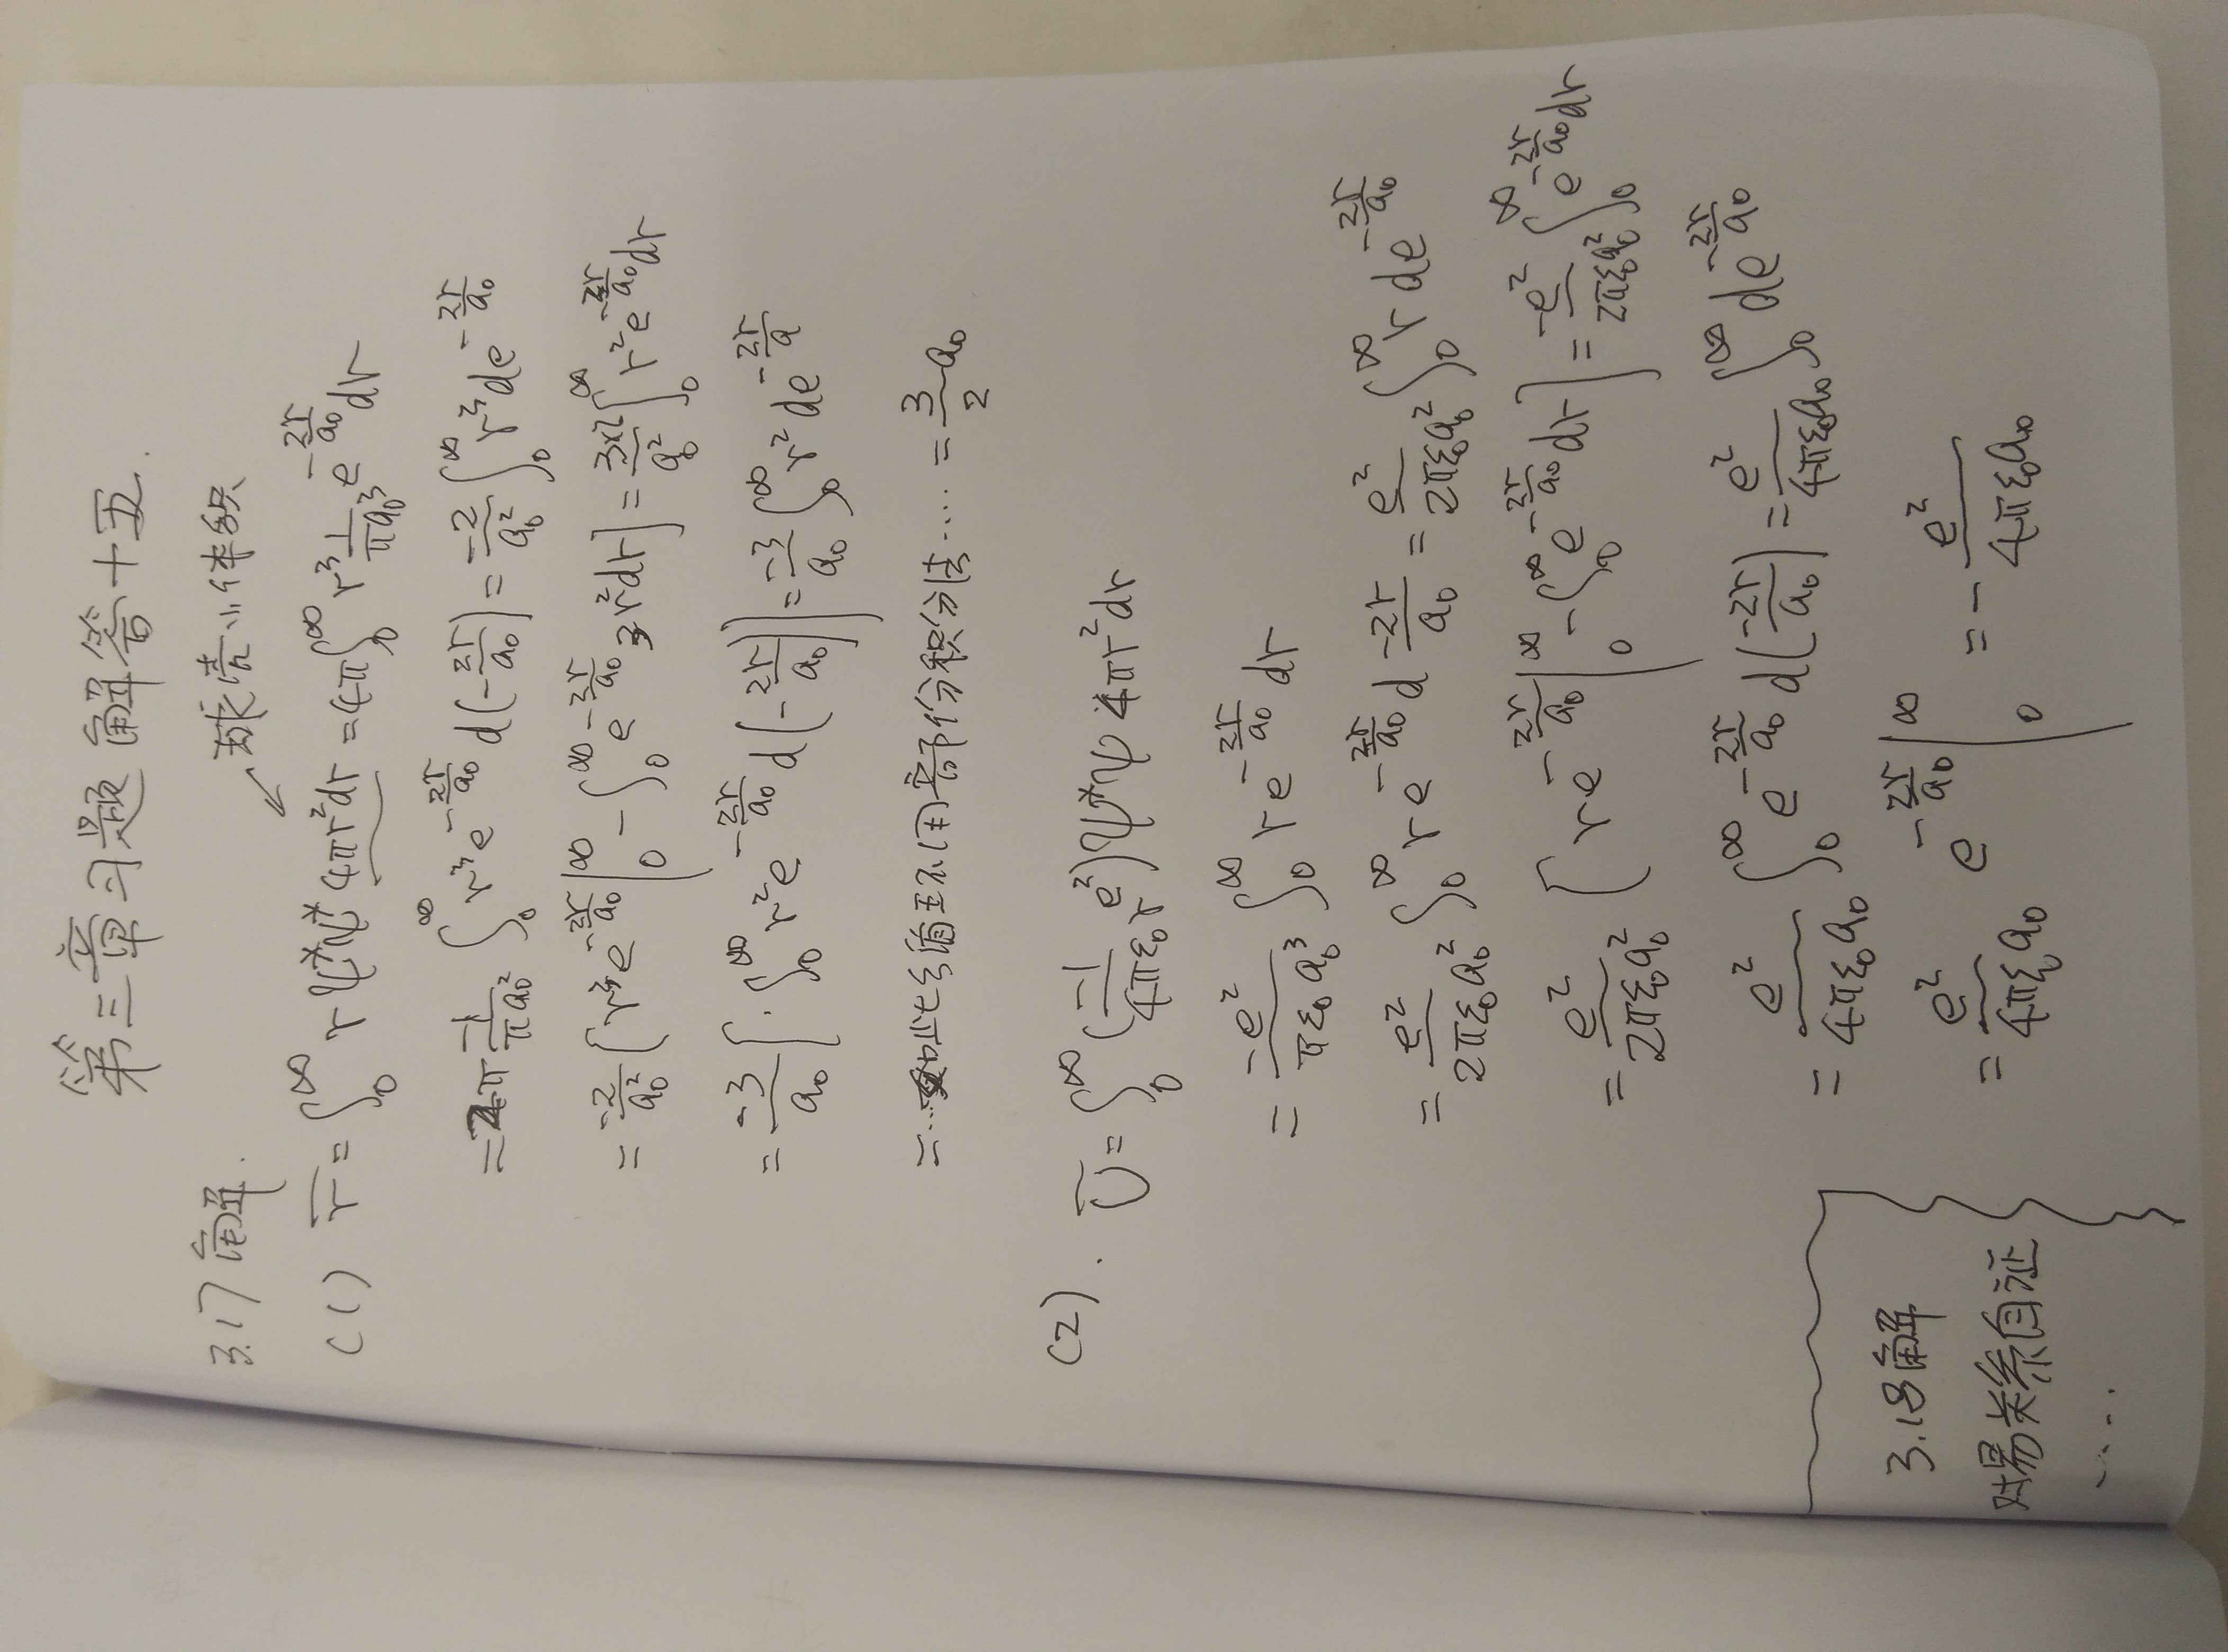 第三章习题解答十五.
3.17解.
↙球壳小体积
(1) r̄ = ∫₀^∞ r ψ*ψ 4πr²dr = 4π∫₀^∞ r³ 1/(πa₀³) e^(-2r/a₀) dr
= 2π -1/(πa₀²) ∫₀^∞ r³ e^(-2r/a₀) d(-2r/a₀) = -2/a₀² ∫₀^∞ r³ de^(-2r/a₀)
= -2/a₀² [r³e^(-2r/a₀)|₀^∞ - ∫₀^∞ e^(-2r/a₀) 3r²dr] = 3×2/a₀² ∫₀^∞ r² e^(-2r/a₀) dr
= -3/a₀ [∫₀^∞ r²e^(-2r/a₀) d(-2r/a₀)] = -3/a₀ ∫₀^∞ r² de^(-2r/a)
= ...如此七多循环利用部份分积分法... = 3/2 a₀
(2). Ū = ∫₀^∞ (-1/(4πε₀r) e²) ψ*ψ 4πr²dr
= -e²/(πε₀a₀³) ∫₀^∞ re^(-2r/a₀) dr
= e²/(2πε₀a₀²) ∫₀^∞ re^(-2r/a₀) d -2r/a₀ = e²/(2πε₀a₀²) ∫₀^∞ r de^(-2r/a₀)
= e²/(2πε₀a₀²) [re^(-2r/a₀)|₀^∞ - ∫₀^∞ e^(-2r/a₀) dr] = -e²/(2πε₀a₀²) ∫₀^∞ e^(-2r/a₀) dr
= e²/(4πε₀a₀) ∫₀^∞ e^(-2r/a₀) d(-2r/a₀) = e²/(4πε₀a₀) ∫₀^∞ de^(-2r/a₀)
= e²/(4πε₀a₀) e^(-2r/a₀)|₀^∞ = -e²/(4πε₀a₀)
3.18解
对易关系自证
....